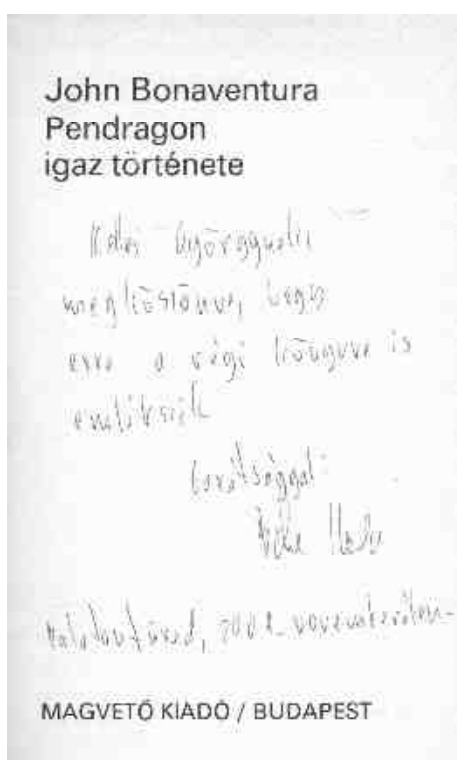 John Bonaventura
Pendragon
igaz története
Györgynek,
megköszönve, hogy
erre a régi könyvre is
emlékszik
barátsággal:
Balatonfüred, 2002. novemberében
MAGVETŐ KIADÓ / BUDAPEST